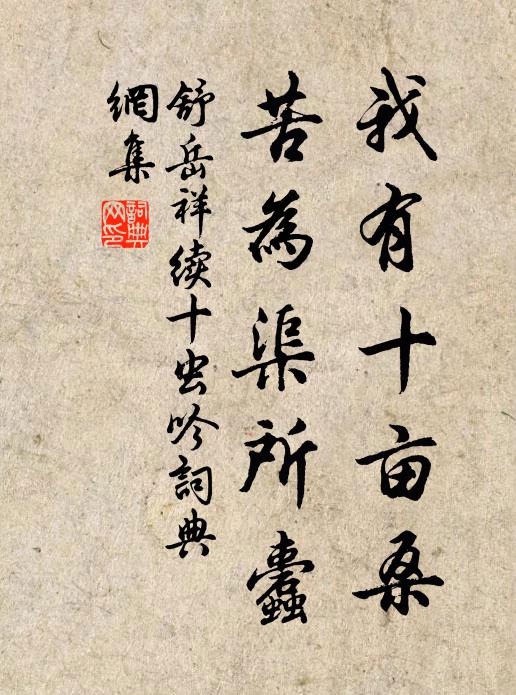 我有十亩桑
苦為渠所蠹
舒岳祥续十虫吟詞典
網集
詞典
网印